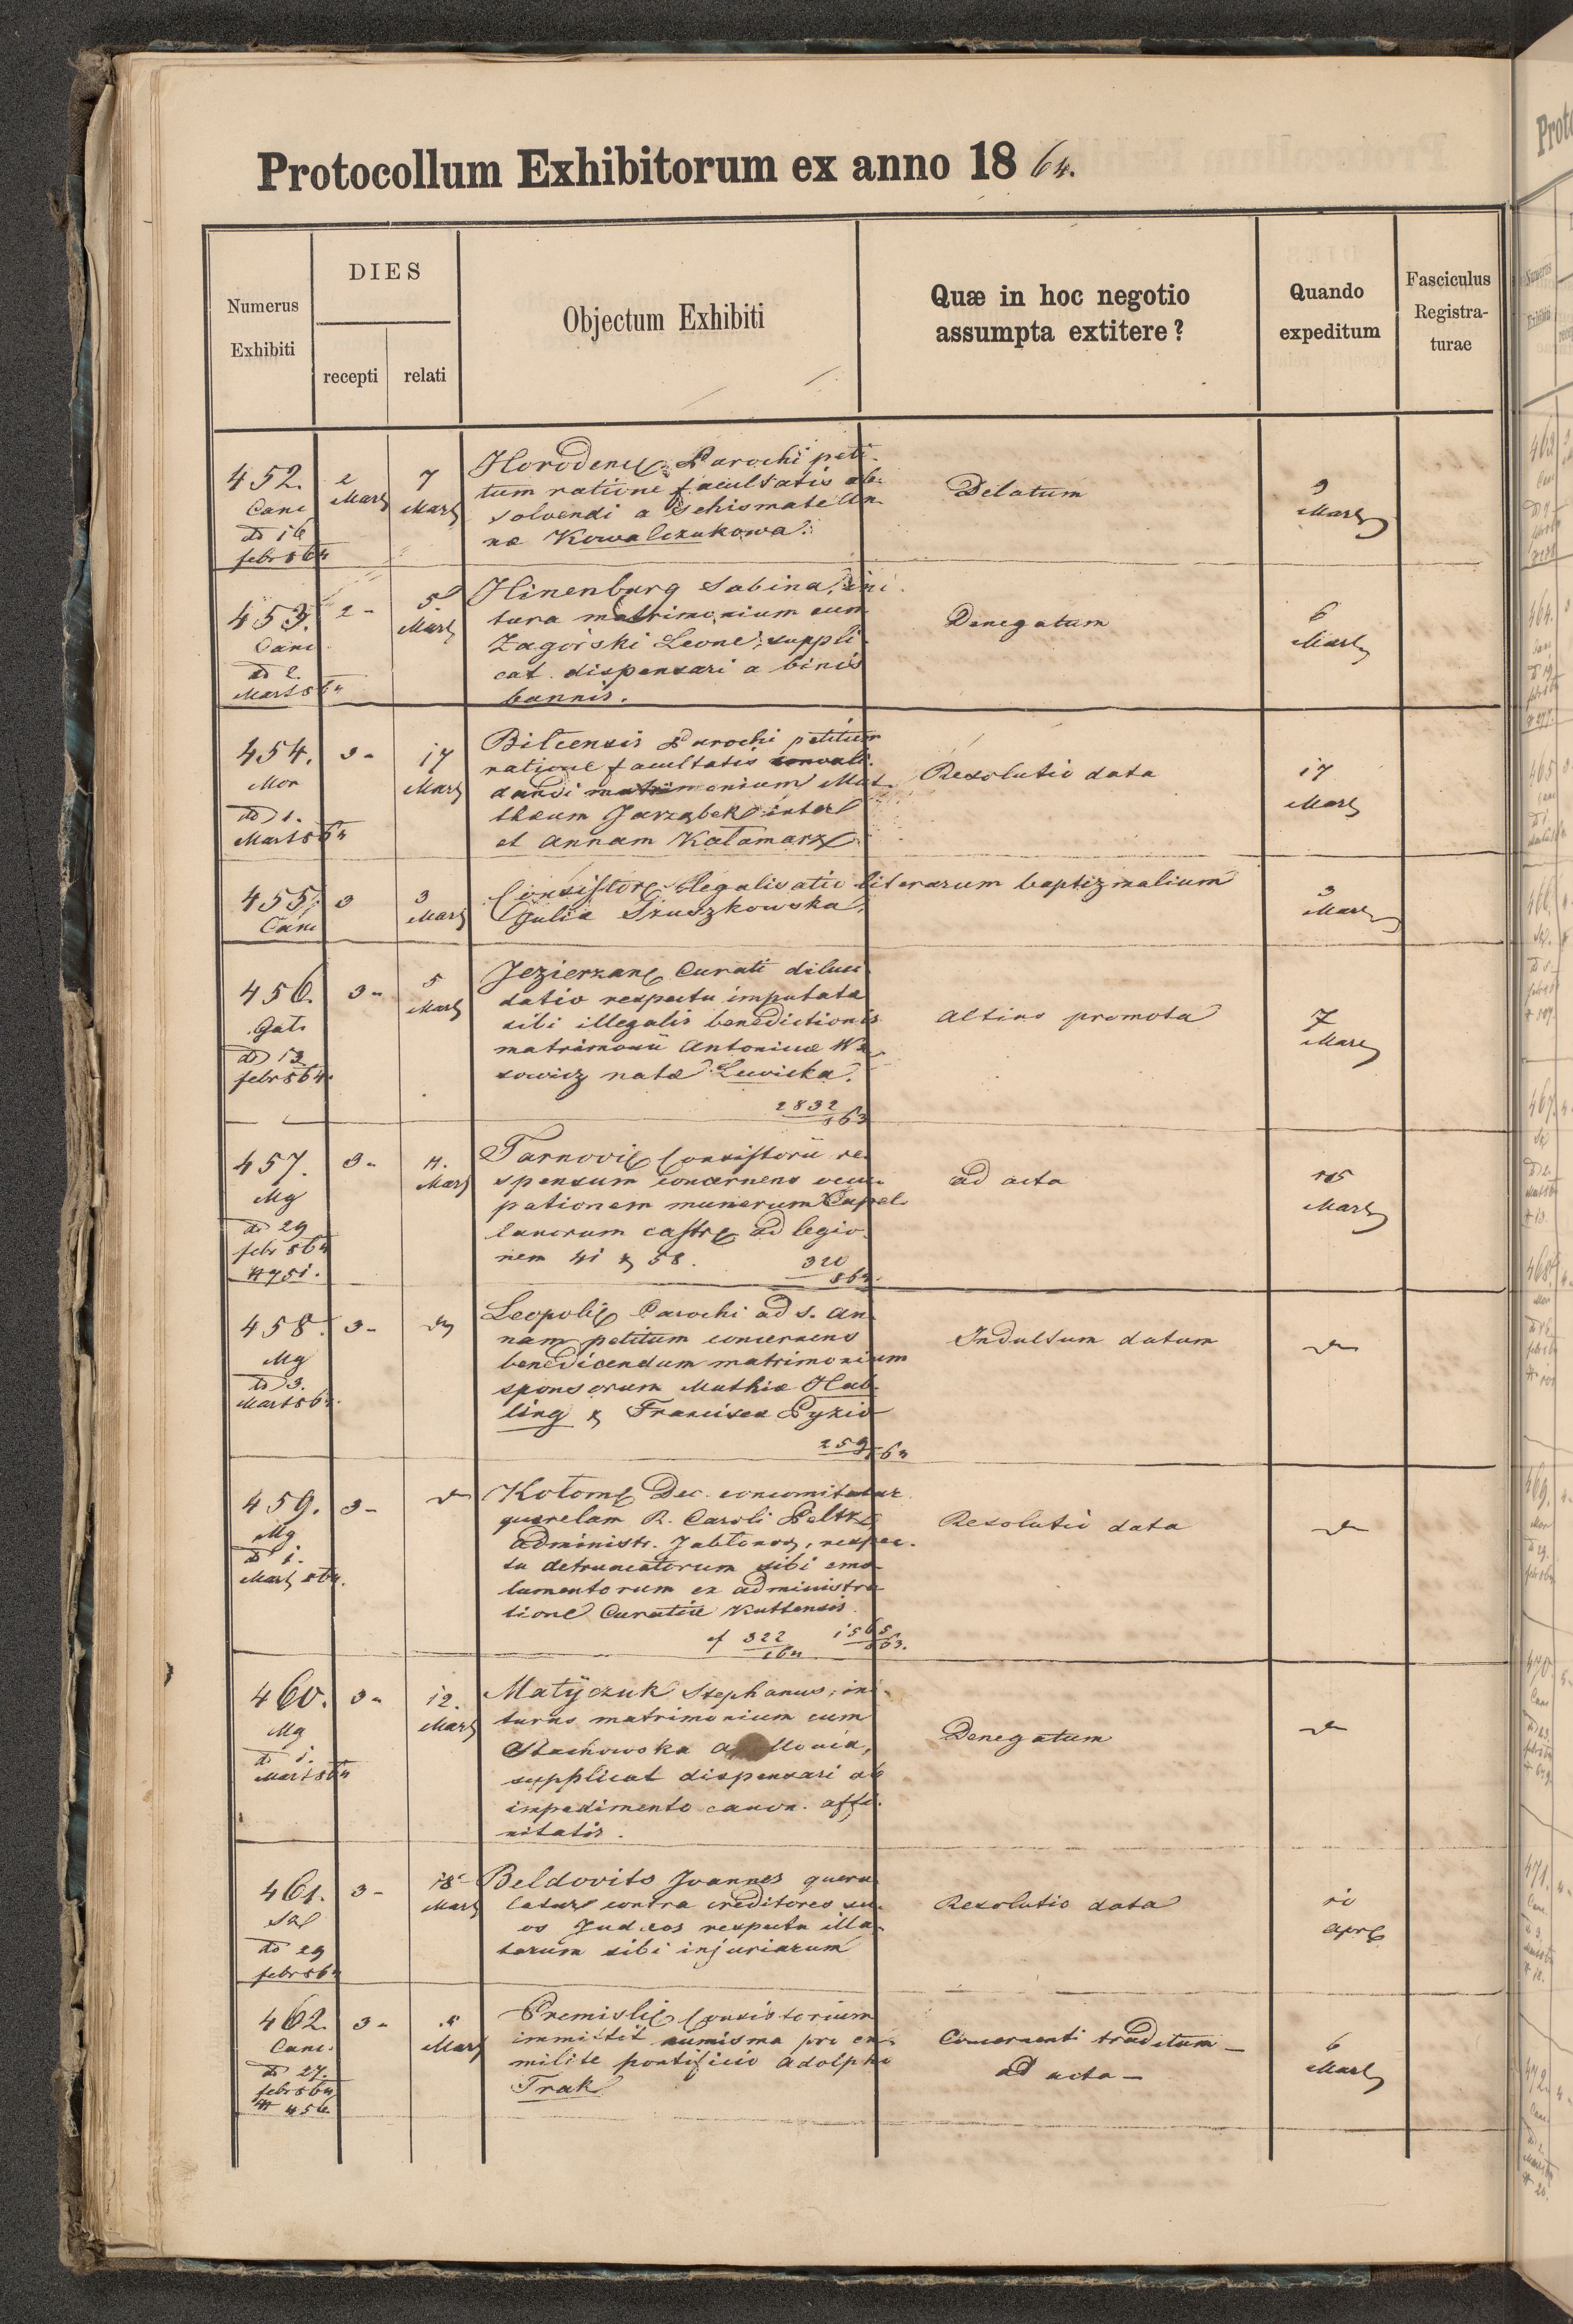 Protocollum Exhibitorum ex anno 1864.
Numerus
Exhibiti
DIES
recepti
relati
Objectum Exhibiti
Quæ in hoc negotio
assumpta extitere?
Quando
expeditum
Fasciculus
Registra-
turae
452.
Canc
dd 16
febr 864
2
Mart
7
Mart
Horodenc Parochi peti-
tum ratione facultatis ab-
solvendi a schismate An-
næ Kowalczukowa.
Delatum
9
Mart
453.
Canc
dd 2.
Mart 864
2-
5
Mart
Hinenburg Sabina, ini-
tura matrimonium cum
Zagórski Leone, suppli-
cat dispensari a binis
bannis.
Denegatum
6
Mart
454.
Mor
dd 1.
Mart 864
3-
17
Mart
Bilcensis Parochi petitum
ratione facultatis convali-
dandi matrimonium Mat-
thæum Jarząbek inter
et Annam Katamarz
Resolutio data
17
Mart
455.
Canc
3
3
Mart
Consistore legalisatio literarum baptizmalium
Julia Gruszkowska.
3
Mart
456.
Gat.
dd 13
febr 864.
3-
5
Mart
Jezierzan Curati diluci-
datio respectu imputata
sibi illegalis benedictionis
matrimonii Antoninæ Wą-
sowicz nata Lewicka.
2832
863
Altius promota
7
Mart
457.
Mg
dd 29
febr 864
# 751.
3-
Mart
Tarnovic Consistorii re-
sponsum concernens occu-
pationem munerum Capel-
lanorum castr ad legio-
nem 41 & 58.
320
864.
ad acta
15
Mart
458.
Mg
dd 3.
Mart 864.
3-
Leopolic Parochi ad S. An-
nam petitum concernens
benedicendum matrimonium
sponsorum Mathiæ Hab-
ling & Francisca Pyzio
259
864
Indultum datum
459.
Mg
dd 1.
Mart 864.
3-
Kołom Dec. concomitatur
querelam R. Caroli Peltz
administr. Jabłonov, respec-
tu detruncatorum sibi emo-
lumentorum ex administra-
tione Curatiæ Kuttensis.
cf 322
864
1565
863.
Resolutio data
460.
Mg
dd 1.
Mart 864
3-
12.
Mart
Matÿczuk Stephanus, ini-
turus matrimonium cum
Stachowska
supplicat dispensari ab
impedimento canon. affi-
nitatis.
Denegatum
461.
Sal
dd 29
febr 864
3-
18
Mart
Beldovits Joannes queru-
latur contra creditores su-
os Judæos respectu illa-
tarum sibi injuriarum
Resolutio data
10
Apr
462.
Canc.
dd 27.
febr 864
# 456
3-
Mart
Premislic Consistorium
immittit numisma pro ex-
milite pontificio Adolpho
Trak
Concernenti traditum -
ad acta -
6
Mart